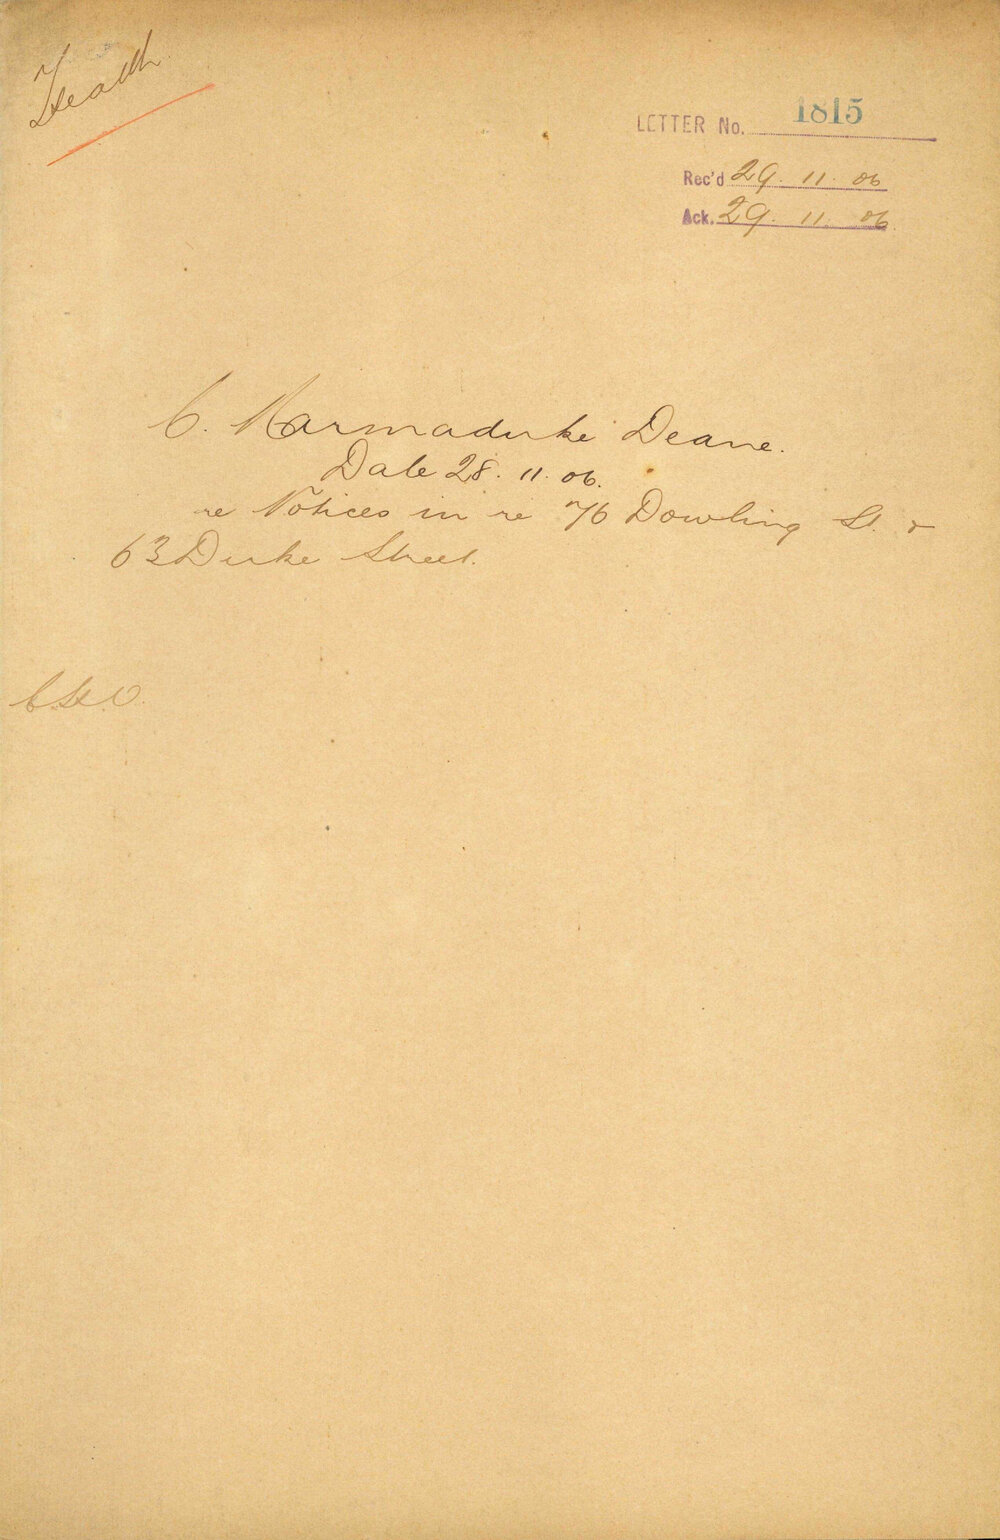 Health
LETTER No. 1815
Rec'd 29. 11. 06
Ack. 29. 11. 06
C. Marmaduke Deane.
Date 28. 11. 06.
re Notices in re 76 Dowling St. &
63 Duke Street.
C.H.O.